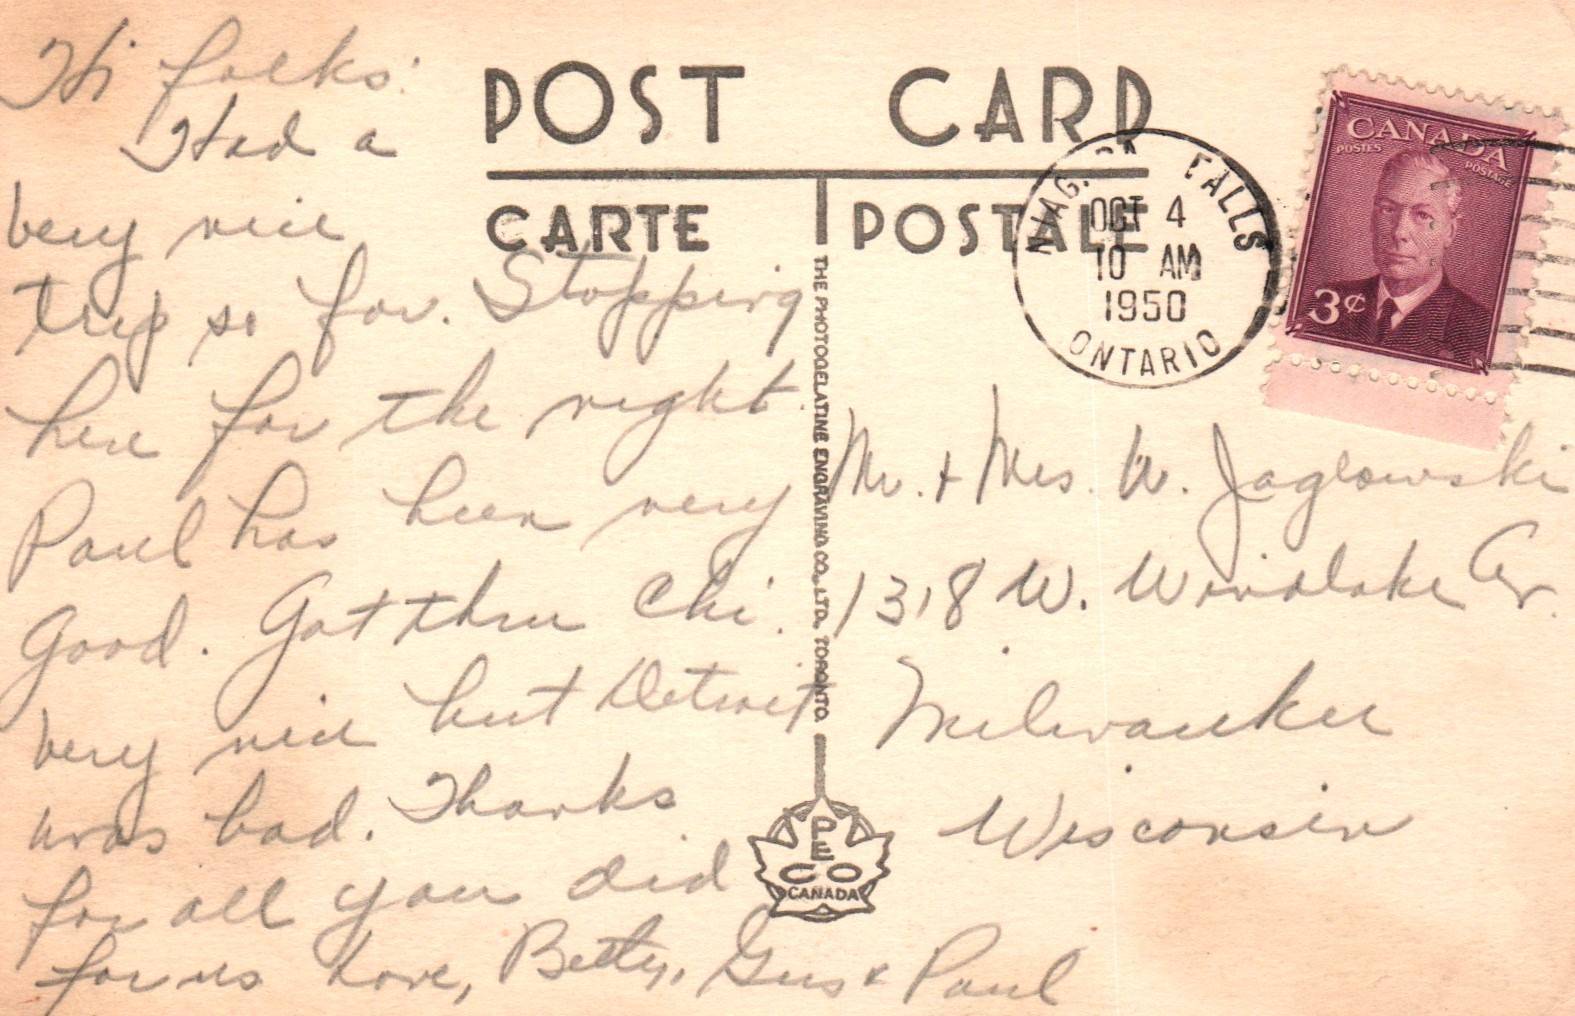 POST CARD
CARTE POSTALE
Hi folks:
Had a
very nice
trip so far. Stopping
here for the night.
Paul has been very
good. Got thru Chi.
very nice but Detroit
was bad. Thanks
for all you did
for us Love, Betty, Gus & Paul
THE PHOTOGELATINE ENGRAVING CO., LTD., TORONTO.
PECO
CANADA
NIAGARA FALLS
OCT 4
10 AM
1950
ONTARIO
CANADA
POSTES POSTAGE
3¢
Mr. + Mrs. W. Jaglowski
1318 W. Windlake Av.
Milwaukee
Wisconsin